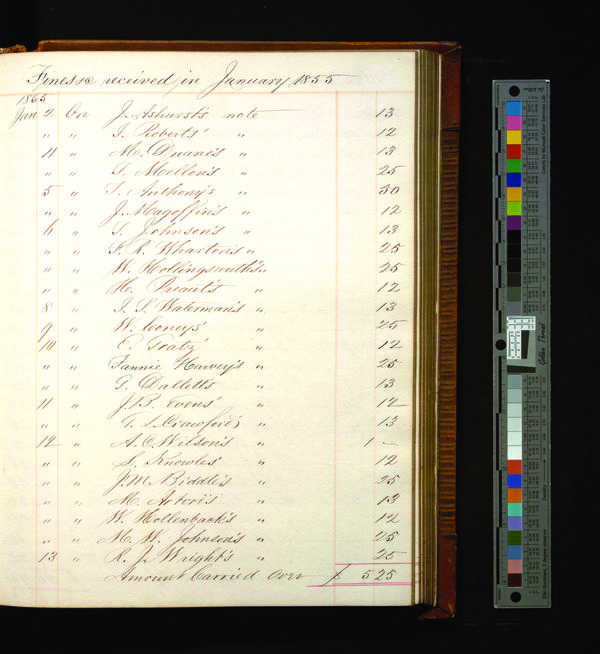 Fines &c received in January 1855
1855
Jan 2 On J. Ashurst's note 13
" " I. Roberts' " 12
4 " M. Duane's " 13
" " S. Mellon's " 25
5 " S. Anthony's " 50
" " J. Magoffin's " 12
6 " S. Johnson's " 13
" " F. R. Wharton's " 25
" " W. Hollingsworth's " 25
" " He. " 12
8 " I. S. Waterman's " 13
9 " W. Cooneys' " 25
10 " E. " 12
" " Fannie Harvey's " 25
" " G. Dallett's " 13
11 " J. B. Evens' " 12
" " T. S. Crawford's " 13
12 " A. C. Wilson's " 1 –
" " S. Knowles' " 12
" " J. M. Biddle's " 25
" " M. " 13
" " W. Hollenback's " 12
" " M. W. Johnson's " 25
13 " R. J. Wright's " 25
Amount Carried Over $ 5 25